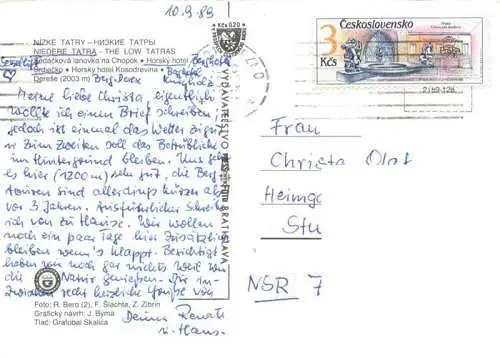 10.9.89
NÍZKE TATRY – НИЗКИЕ ТАТРЫ
NIEDERE TATRA – THE LOW TATRAS
Sedačková lanovka na Chopok • Horský hotel
Srdiečko • Horský hotel Kosodrevina •
Ďereše (2003 m)
Meine liebe Christa, eigentlich
wollte ich einen Brief schreiben
jedoch ist einmal das Wetter zu gut
u. zum Zweiten soll das Betrübliche
im Hintergrund bleiben. Uns geht
es hier (1200 m) sehr gut, die Berg-
touren sind allerdings kürzer als
vor 3 Jahren. Ausführlicher schreibe
ich von zu Hause. Wir wollen
noch ein paar Tage hier zusätzlich
bleiben wenn's klappt. Besichtigt
haben wir noch gar nichts weil wir
die Natur genießen. Für in-
zwischen recht herzliche Grüße von
Deiner Renate
u. Hans.
Foto: R. Bero (2), F. Šlachta, Z. Zibrin
Grafický návrh: J. Byma
Tlač: Grafobal Skalica
Kčs 0,20
VYDAVATEĽSTVO
BRATISLAVA
Československo
3
Kčs
Frau
Christa
Heimga
Stu
NSR 7